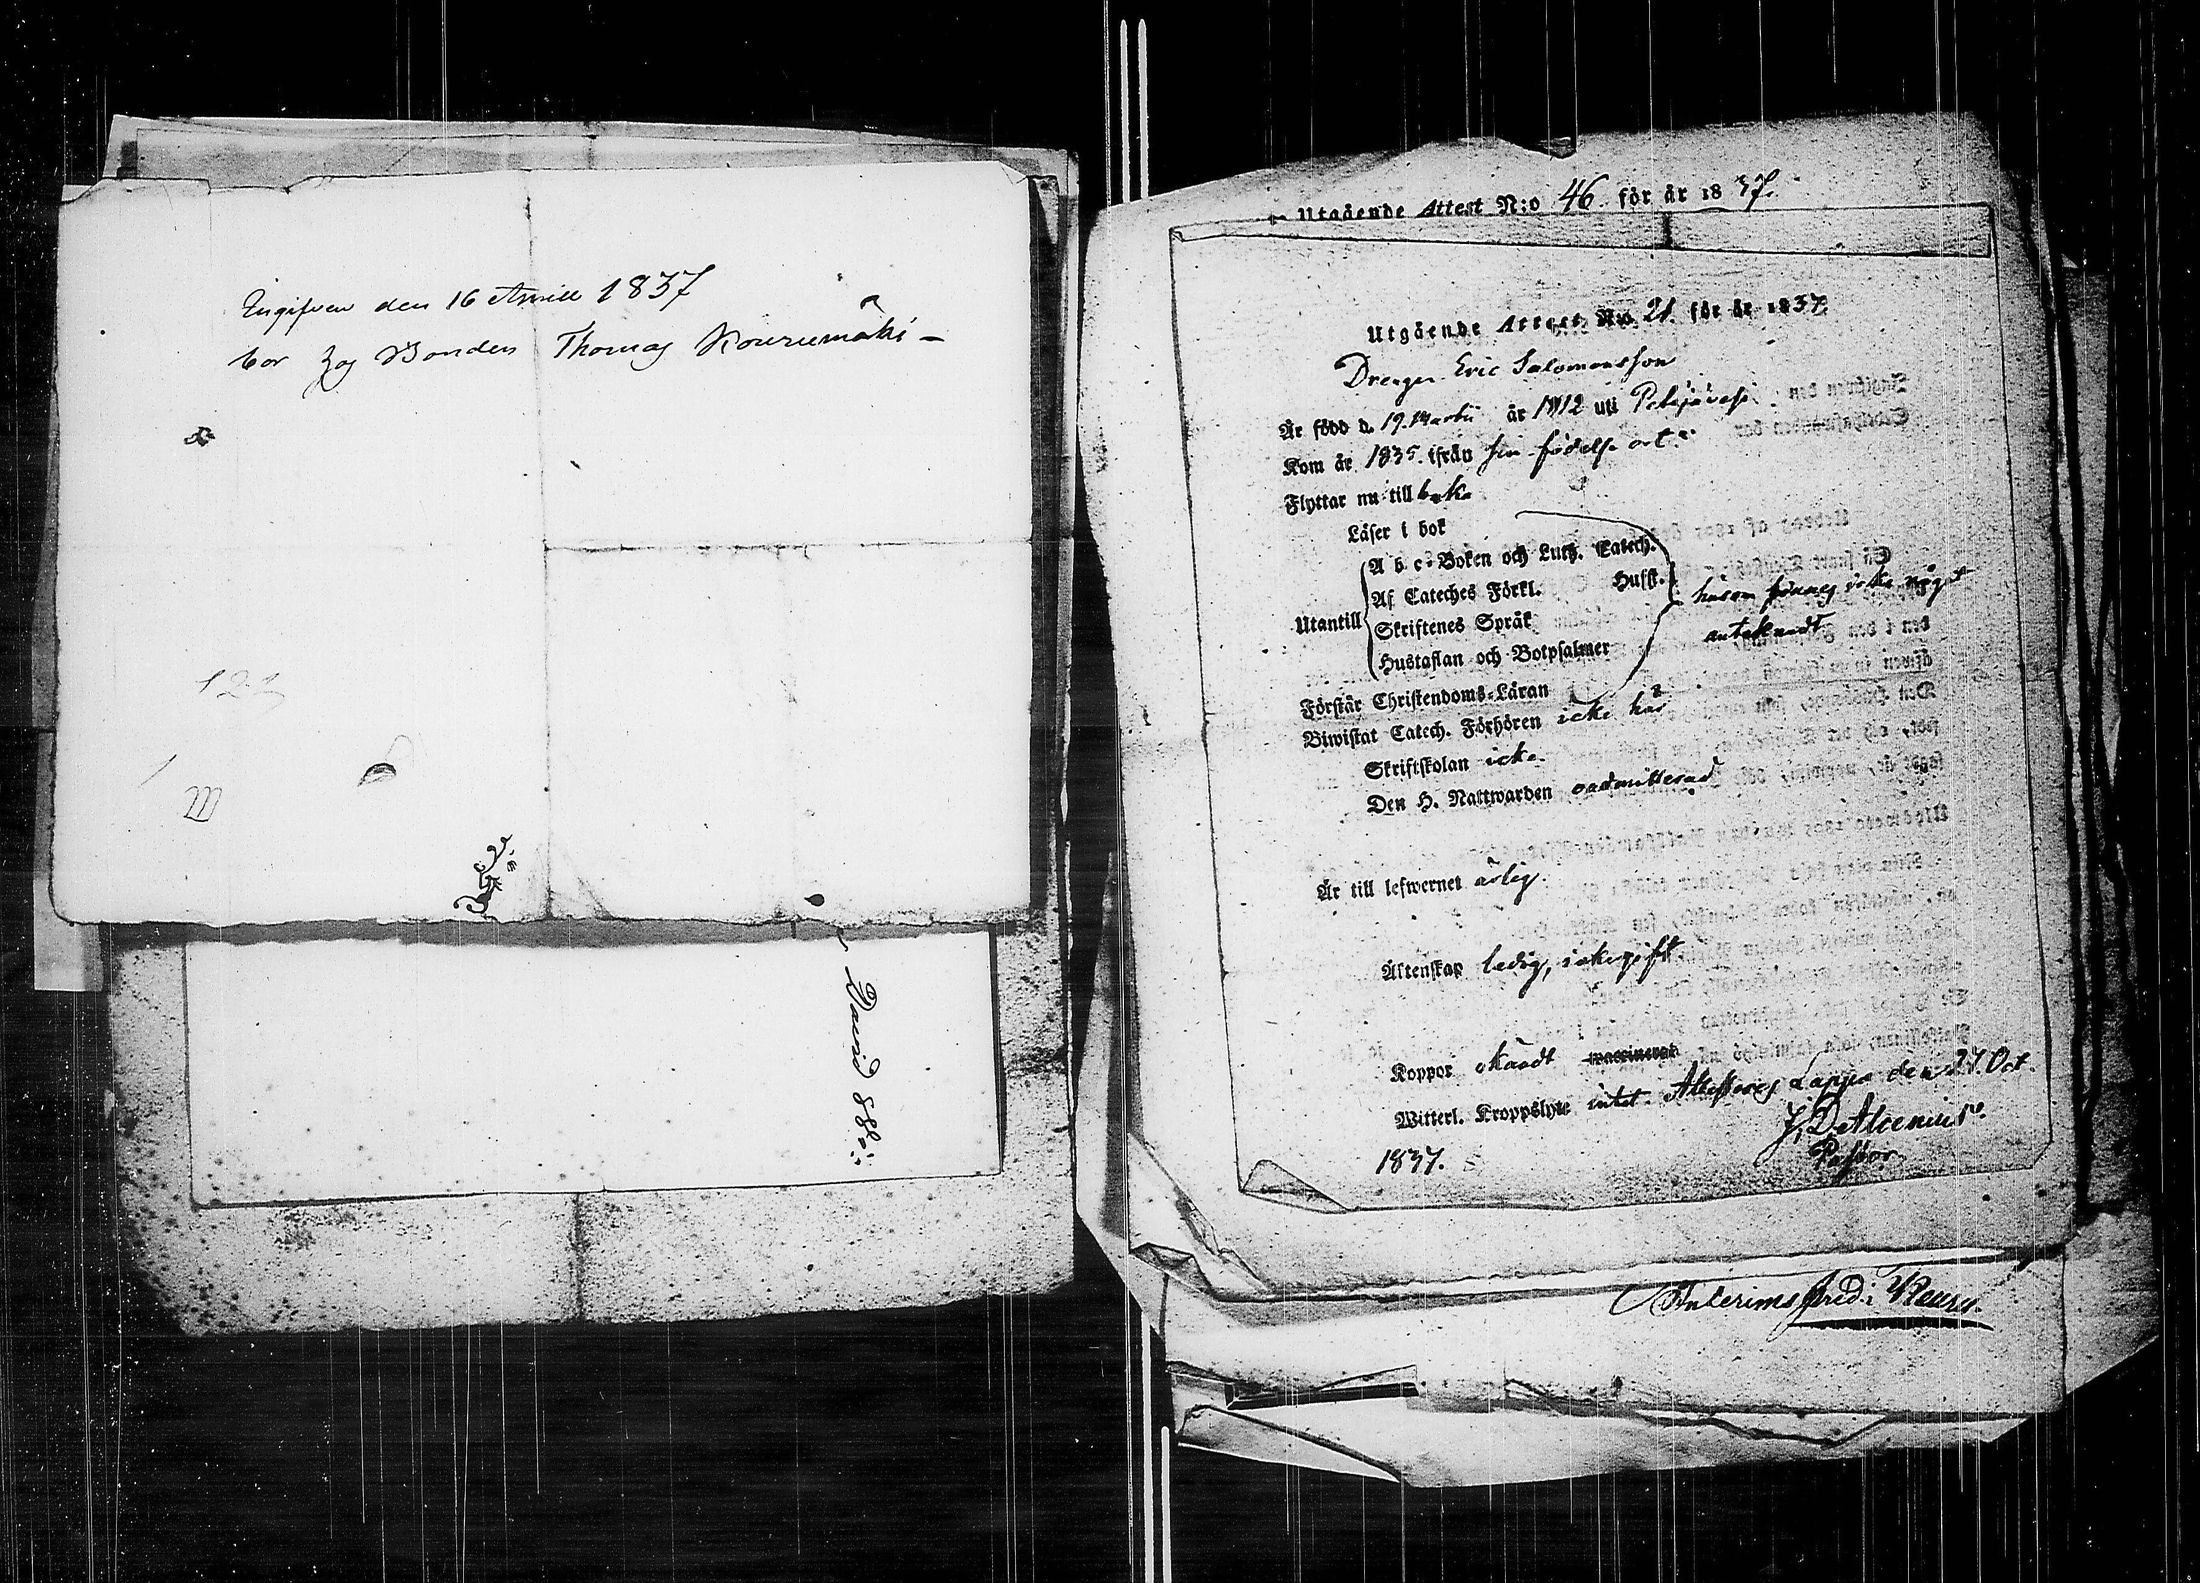 Ingifven den 16 Aprill 1837
bor hos Bonden Thomas Kourumäki –
121
David 88
Utgående Attest N:o 46. för år 1837.
Utgående Attest N:o 21. för år 1837.
Drengen Eric Salomonsson
Är född d. 19. Martii år 1812 uti Pelejärvesi
Kom år 1835. ifrån sin födelse ort.
Flyttar nu till baka
Läser i bok
A b c-Boken och Luth. Catech.
Af Cateches Förkl. Husst.
Utantill
Skriftenes Språk
Hustaflan och Botpsalmer
härom finnes icke något
antecknadt
Förstår Christendoms-Läran
Biwistat Catech. Förhören icke här
Skriftskolan icke
Den H. Nattwarden oadmitterad
Är till lefwernet ärlig.
Äktenskap ledig, icke gift.
Koppor skaadt waccinerat
Witterl. Kroppslyte intet. Attesteras Lappo den 27. Oct.
1837.
J. D. Alcenius.
Pastor.
Interims